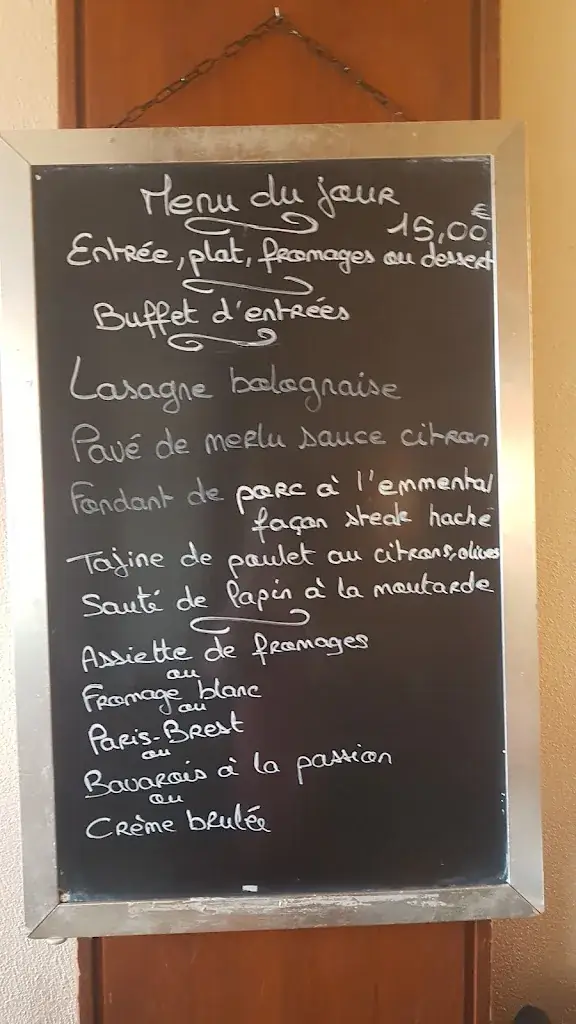 Menu du jour
15,00€
Entrée, plat, fromages ou dessert
Buffet d'entrées
Lasagne bolognaise
Pavé de merlu sauce citron
Fondant de porc à l'emmental
façon steak haché
Tajine de poulet au citrons, olives
Sauté de lapin à la moutarde
Assiette de fromages
ou
Fromage blanc
ou
Paris-Brest
ou
Bavarois à la passion
ou
Crème brulée